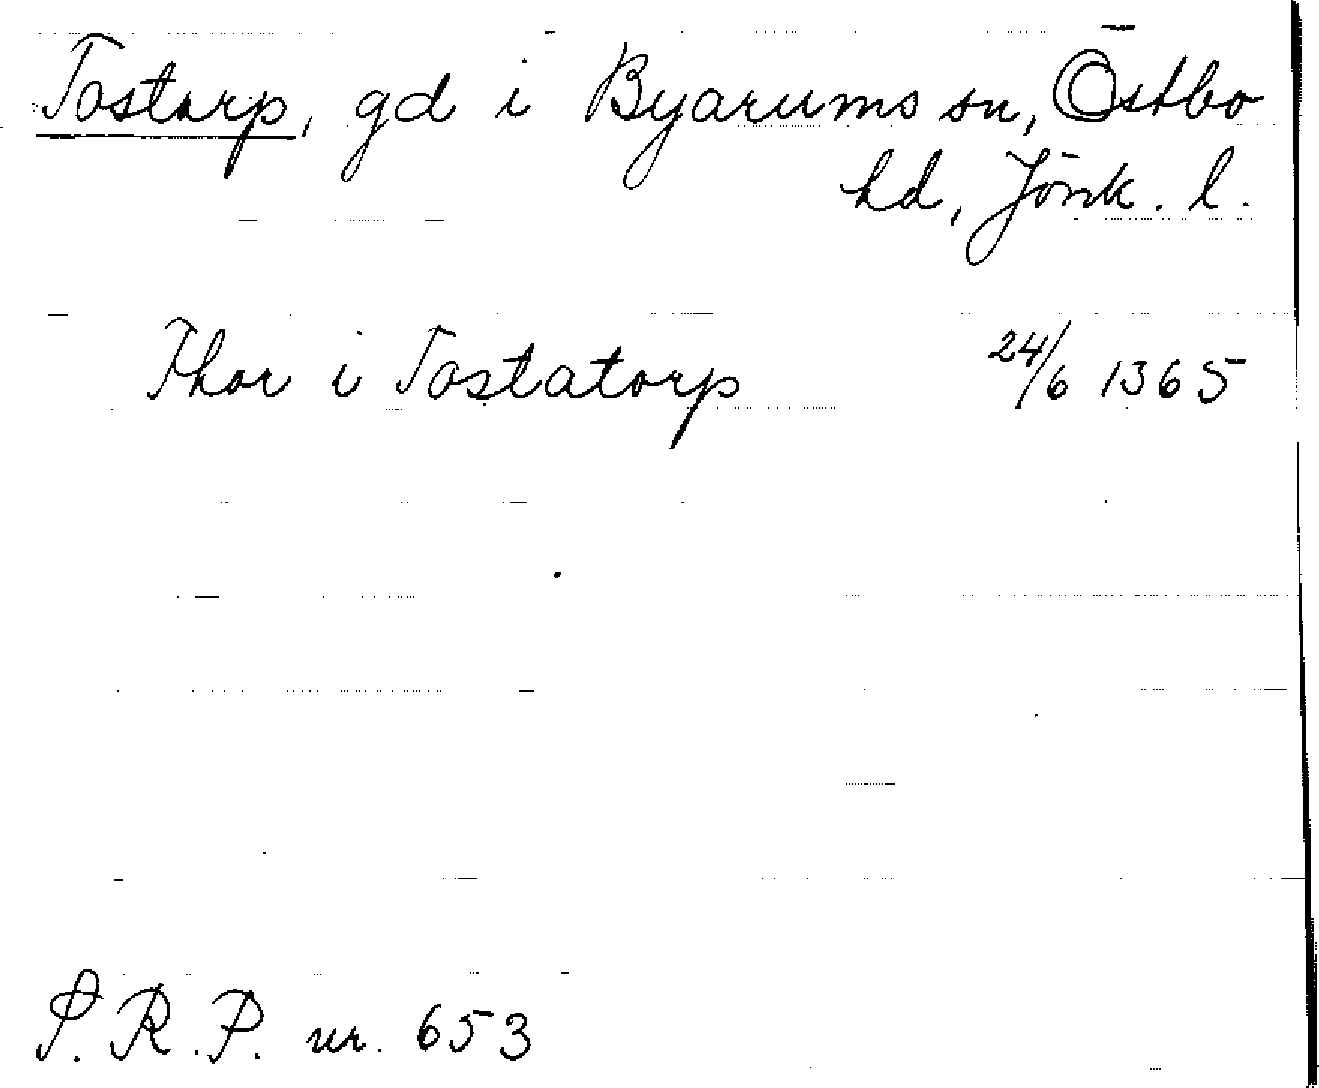 Tostarp, gd i Byarums sn, Östbo
hd, Jönk. l.
Thor i Tostatorp 24/6 1365
S.R.P. nr. 653